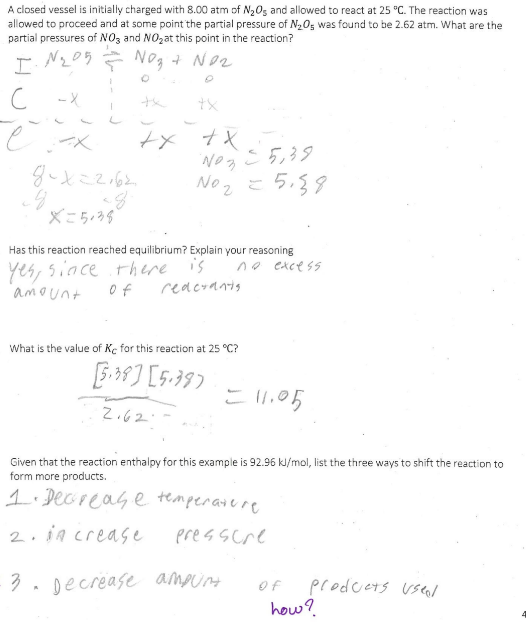 A closed vessel is initially charged with 8.00 atm of N₂O₅ and allowed to react at 25 °C. The reaction was
allowed to proceed and at some point the partial pressure of N₂O₅ was found to be 2.62 atm. What are the
partial pressures of NO₃ and NO₂ at this point in the reaction?
I. N₂O₅ ⇌ NO₃ + NO₂
0 0
C -x +x +x
e -x +x +x
NO₃ = 5,39
8-x=2.62 NO₂ = 5.38
-8 -8
x=5.38
Has this reaction reached equilibrium? Explain your reasoning
yes, since there is no excess
amount of reactants
What is the value of K_C for this reaction at 25 °C?
[5.38] [5.38)
2.62 = 11.05
Given that the reaction enthalpy for this example is 92.96 kJ/mol, list the three ways to shift the reaction to
form more products.
1. Decrease temperature
2. increase pressure
3. Decrease amount of products used
how?
4